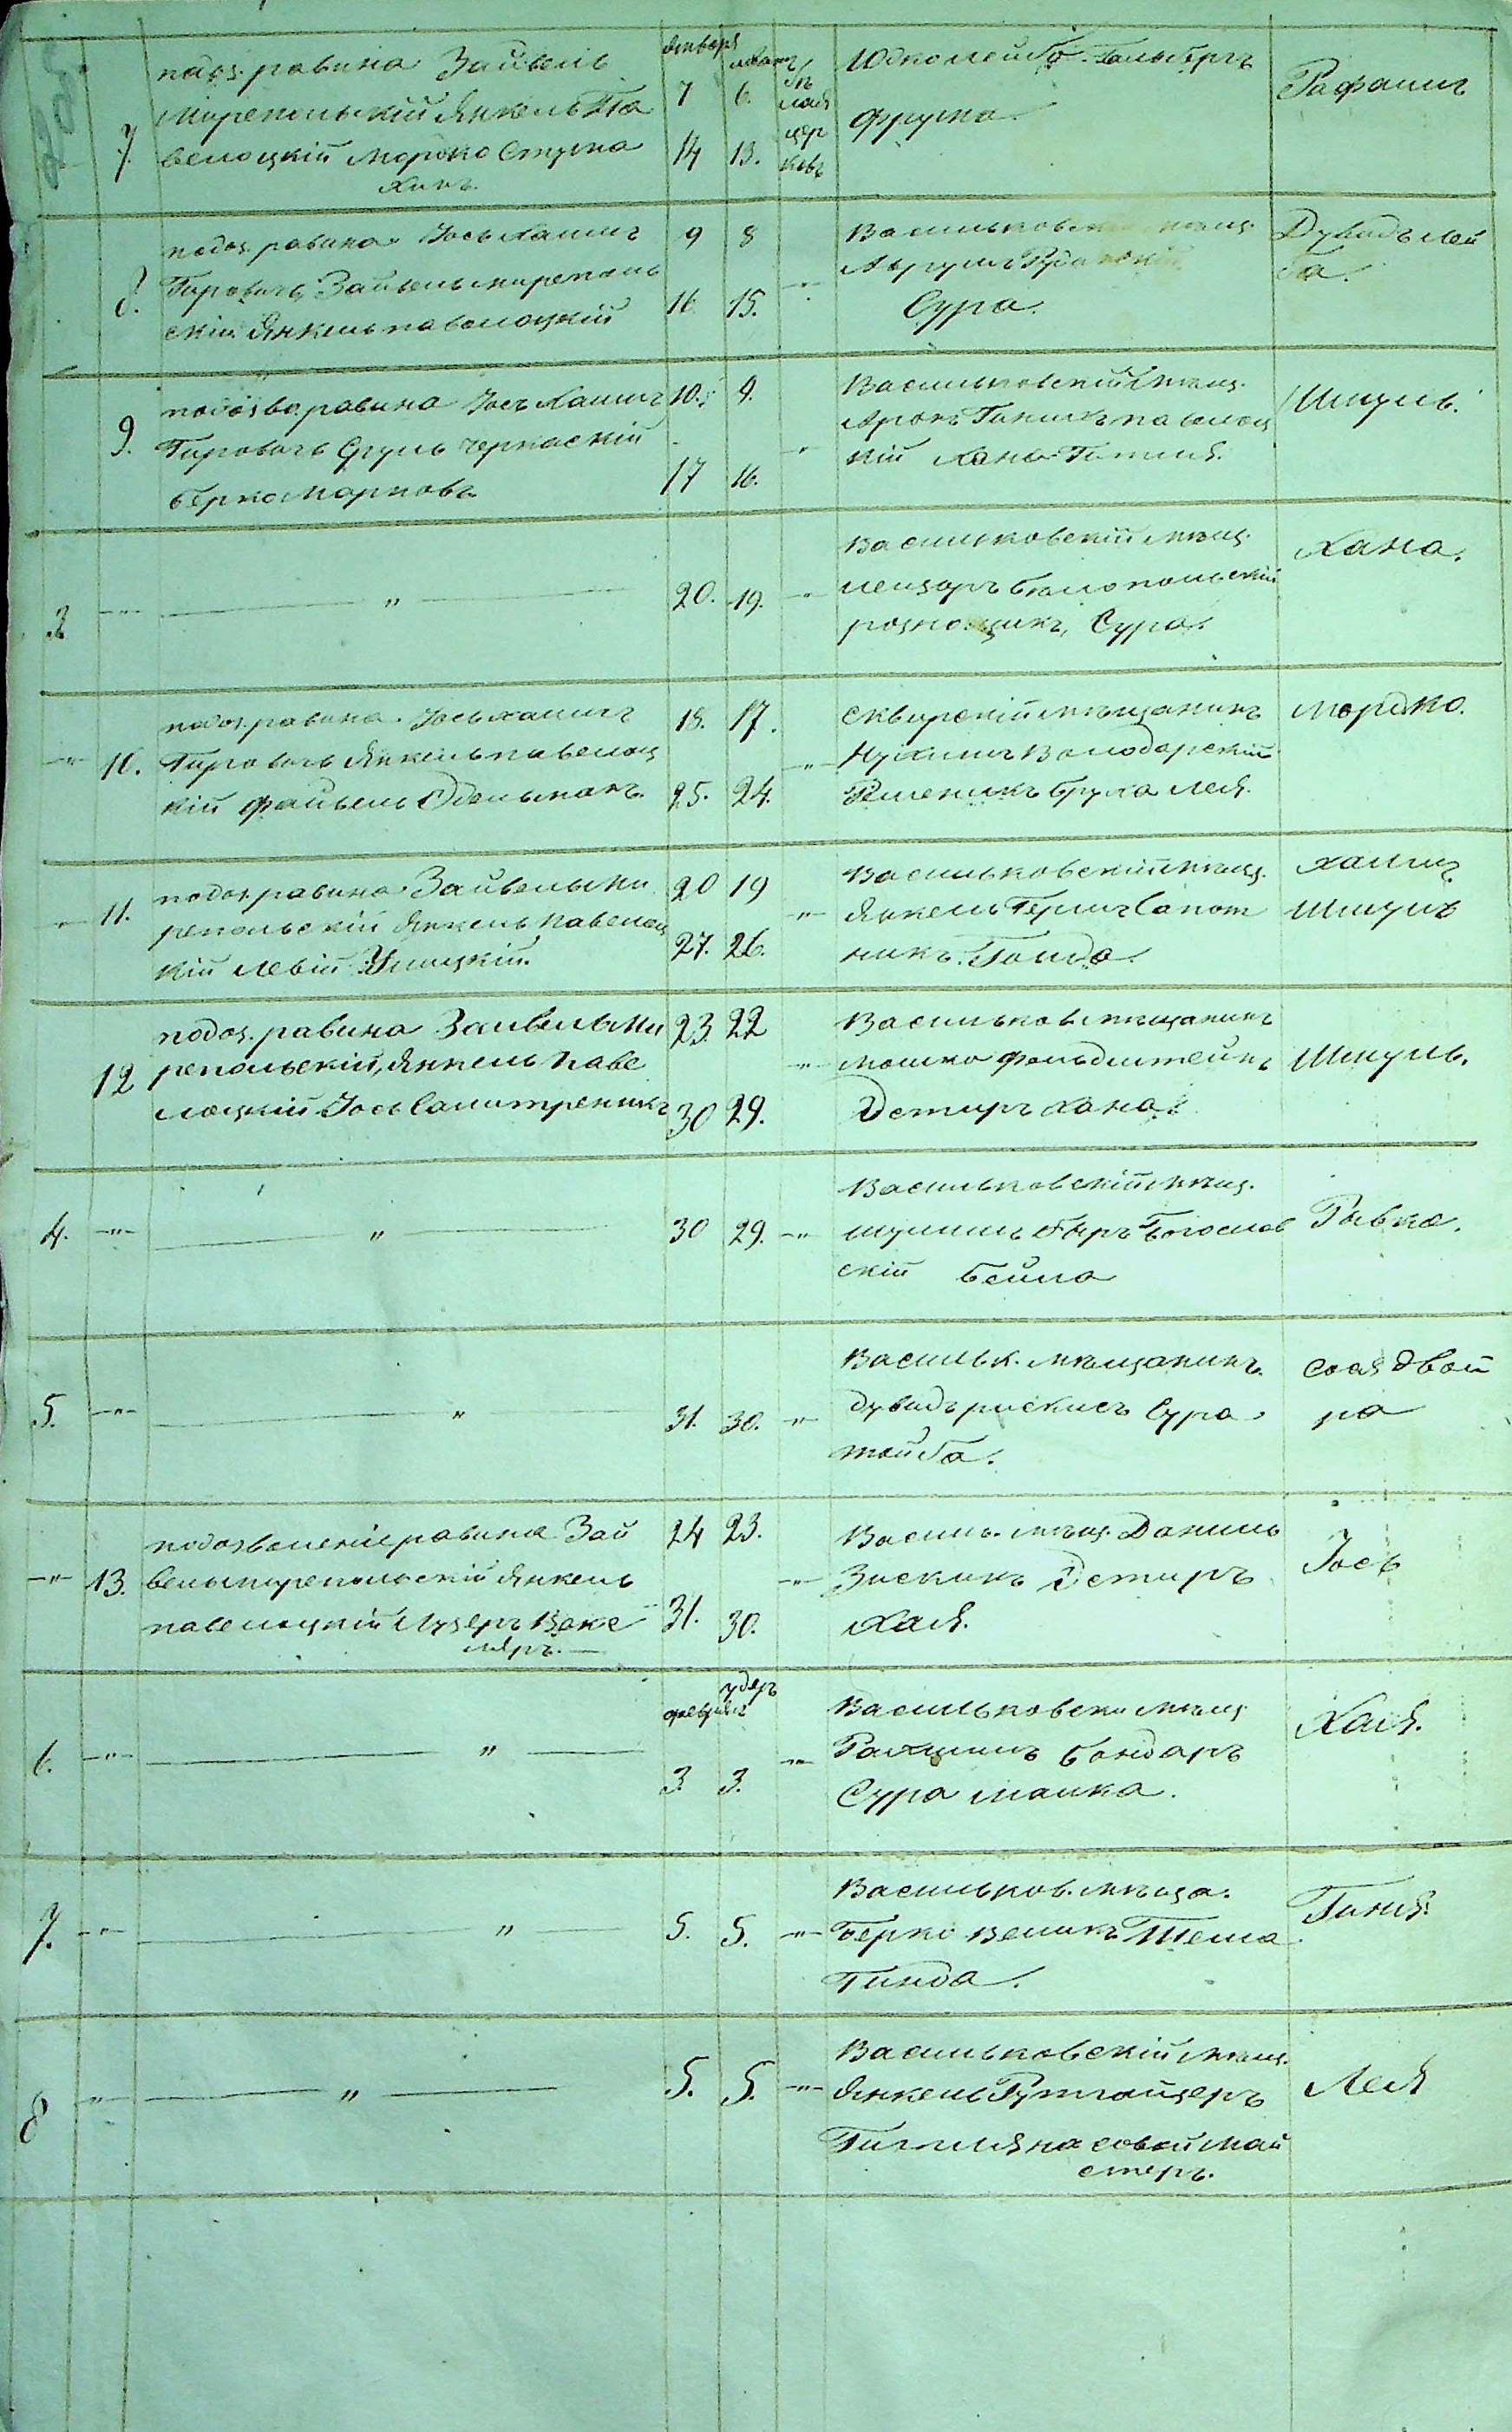 7. подоз. равина Зайвель
Миропольскій Янкель Па
велоцкій Мордко Стума
хинъ.
Января
7 6.
14 13.
Бѣ
лая
цер
ковь
Юдко лейба Гольбергъ
Фрума.
Рафаилъ
8. подоз. равина Іось Хаимъ
Гирович Зайвель миреполь
скій Янкель павелоцкій
9 8
16 15. "
Васильковск мѣщ
Аврумъ
Сура.
Дувидъ лей
ба.
9. подозво равина Іось Хаимъ
Гировичъ Сруль Черкаскій
Берко Марковъ
10. 9.
17 16. "
Васильковскій мѣщ.
Аронъ павелоц
кій Хана Гитля.
Шмуль.
2 " " 20. 19. "
Васильковскій мѣщ.
Лейзаръ Бѣлопольскій
розношикъ, Сура.
Хана.
" 10. подоз. равина Іось хаимъ
Гировичъ Янкель павелоц
кій Файвель Эдельманъ.
18. 17.
25. 24. "
Сквирскій мѣщанинъ
Нухимъ Володарскій
Бруха Лея.
Мордко.
" 11. подоз. равина Зайвель Ми
репольскій Янкель Павелоц
кій Левій
20 19
27. 26. "
Васильковскій мѣщ.
Янкель Гершъ Сапож
никъ. Гольда.
Хаимъ
Шмуль
12 подоз. равина Зайвель Ми
репольскій, Янкель Паве
лоцкій Іось Салитреникъ
23. 22
30 29. "
Васильков мѣщанинъ
Мошко Фельдштейнъ
Эстиръ хана.
Шмуль.
4. " " 30 29. "
Васильковскій мѣщ.
Шулимъ Беръ Богослав
скій Бейла
Рывка.
5. " " 31. 30. "
Васильк. мѣщанинъ
Дувидъ Сура
тойба.
Соая двой
ра
" 13. подозволеніе равина Зай
вель миропольскій Янкель
павелоцкій Лузеръ Веке
леръ.
24 23.
31. 30. "
Василь. мѣщ. Даниль
Зискинъ Эстиръ
Хая.
Іось
Февраль Адеръ
6. " " 3. 3. "
Васильковски мѣщ
Рахмиль Бондаръ
Сура малка.
Хая.
7. " " 5. 5. "
Васильков. мѣща.
Берко Великъ Шема
Гинда.
Гиня.
8 " " 5. 5. "
Васильковскій мѣщ.
Янкель Рутгайзеръ
Гитля часовой май
стеръ.
Лея